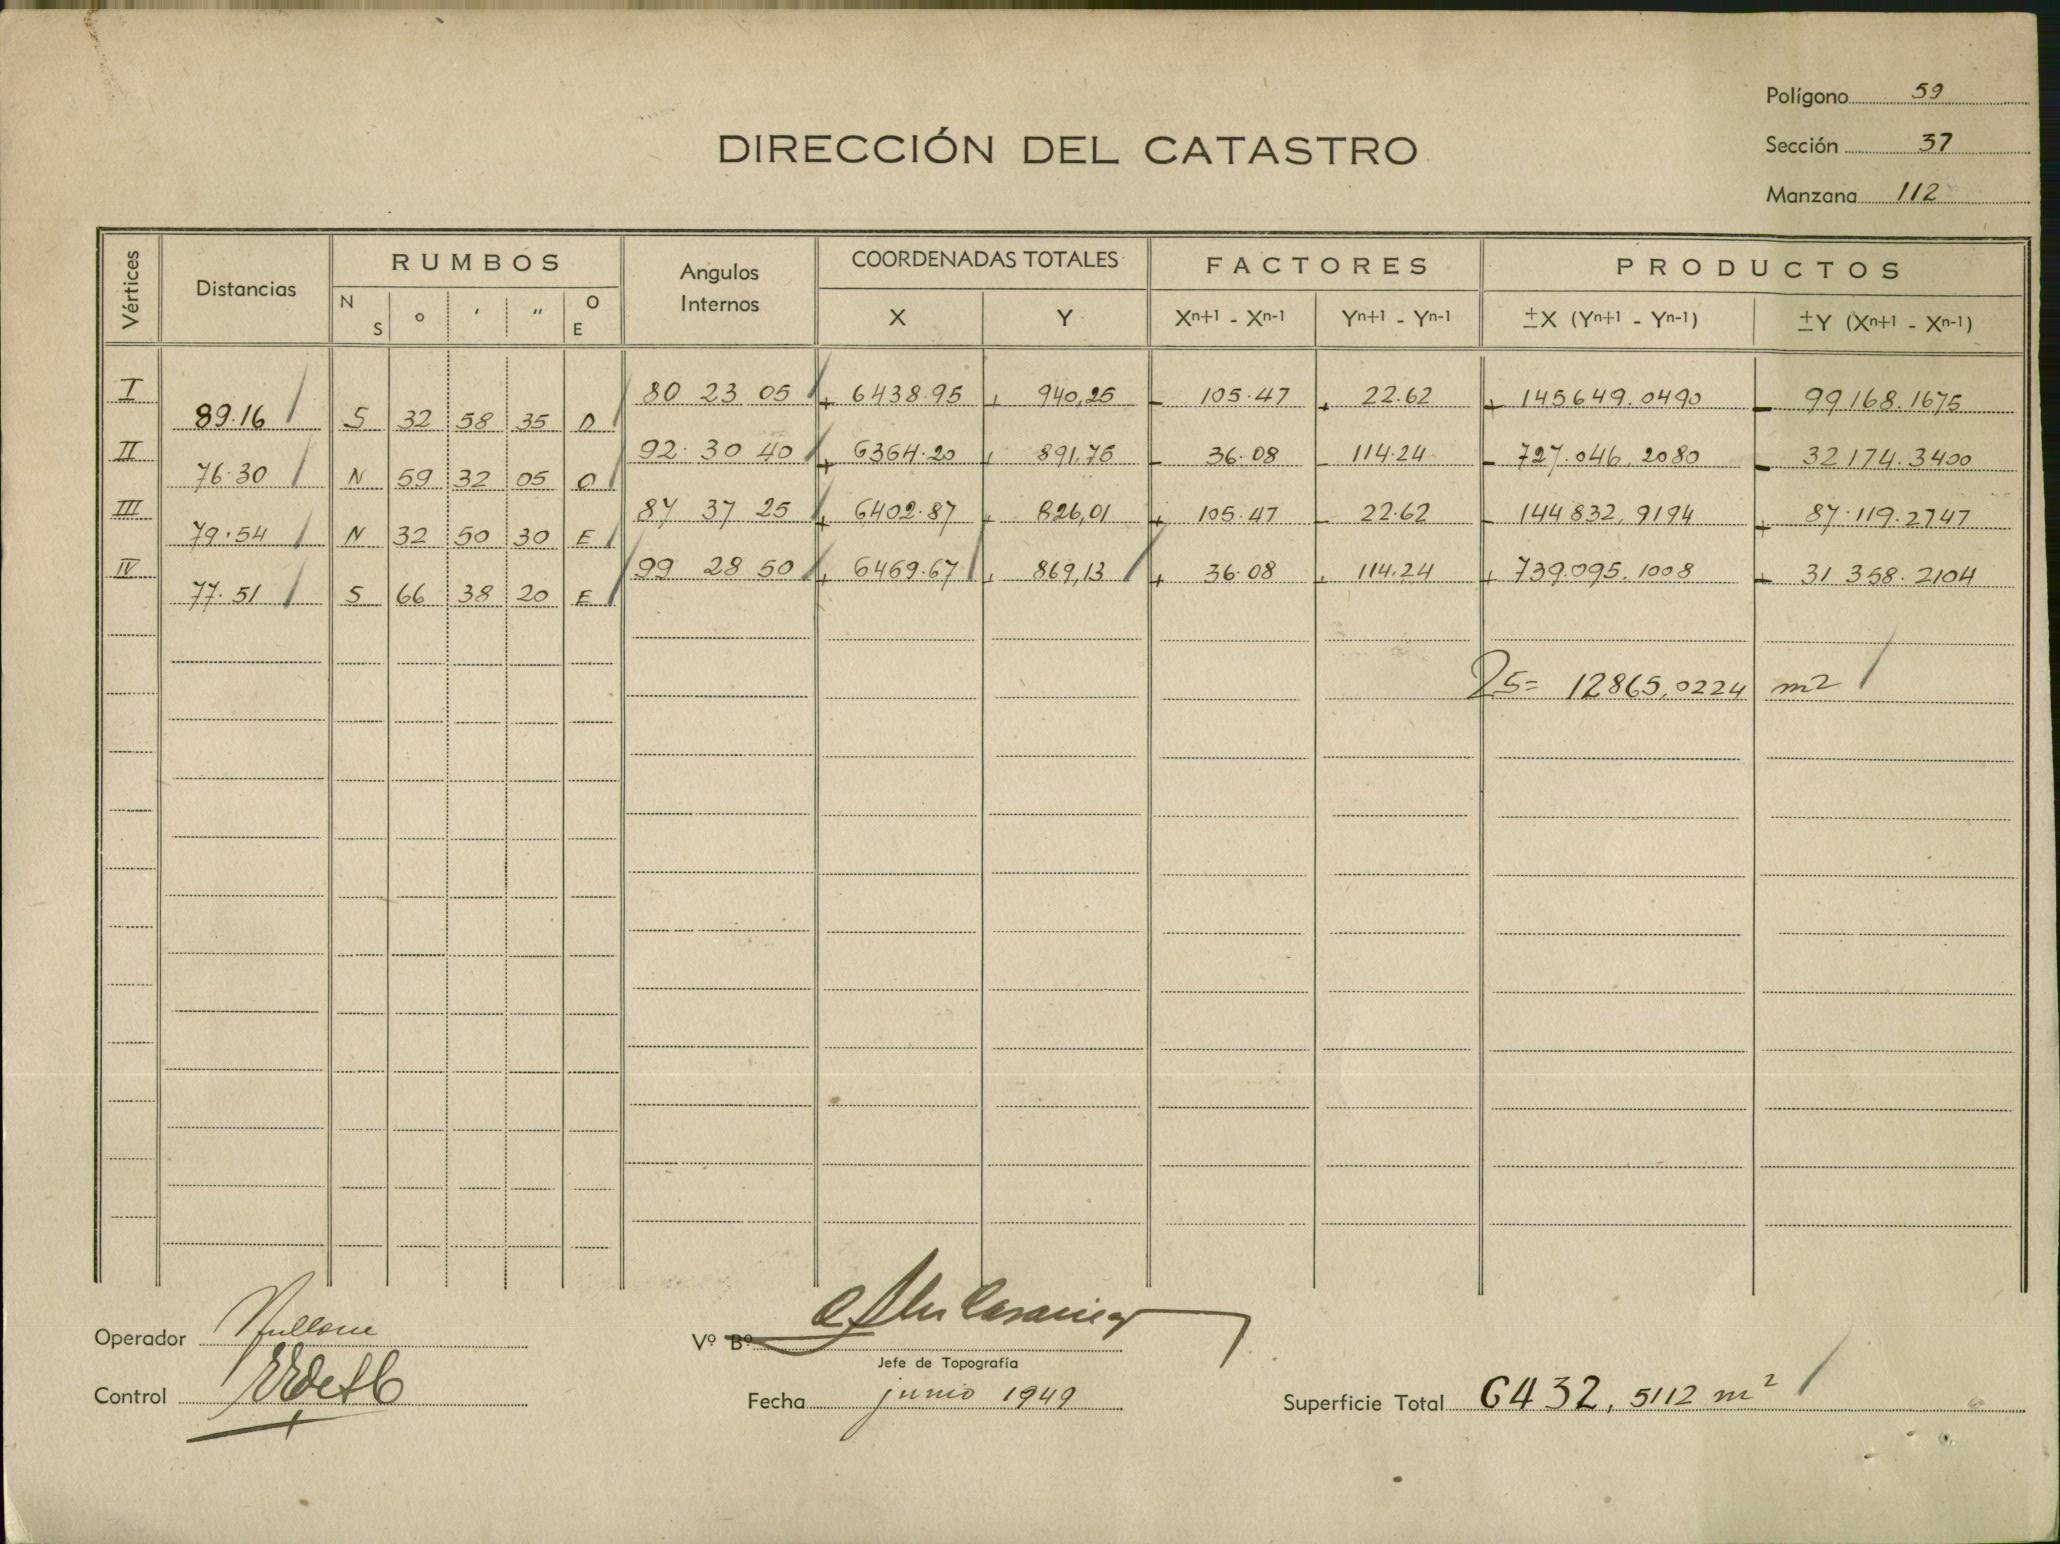 Polígono 59
DIRECCIÓN DEL CATASTRO
Sección 37
Manzana 112
Vértices Distancias RUMBOS Angulos Internos COORDENADAS TOTALES FACTORES PRODUCTOS
N S ° ' " O E X Y Xn+1 - Xn-1 Yn+1 - Yn-1 ±X (Yn+1 - Yn-1) ±Y (Xn+1 - Xn-1)
I 80 23 05 + 6438.95 + 940,25 - 105.47 + 22.62 + 145649.0490 - 99168.1675
89.16 S 32 58 35 O
II 92 30 40 + 6364.20 + 891,75 - 36.08 - 114.24 - 727.046.2080 - 32174.3400
76.30 N 59 32 05 O
III 87 37 25 + 6402.87 + 826,01 + 105.47 - 22.62 - 144832.9194 + 87.119.2747
79.54 N 32 50 30 E
IV 99 28 50 + 6469.67 + 869,13 + 36.08 + 114.24 + 739.095.1008 + 31358.2104
77.51 S 66 38 20 E
2S= 12865.0224 m2
Operador
Vº Bº
Jefe de Topografía
Control
Fecha junio 1949
Superficie Total 6432,5112 m2